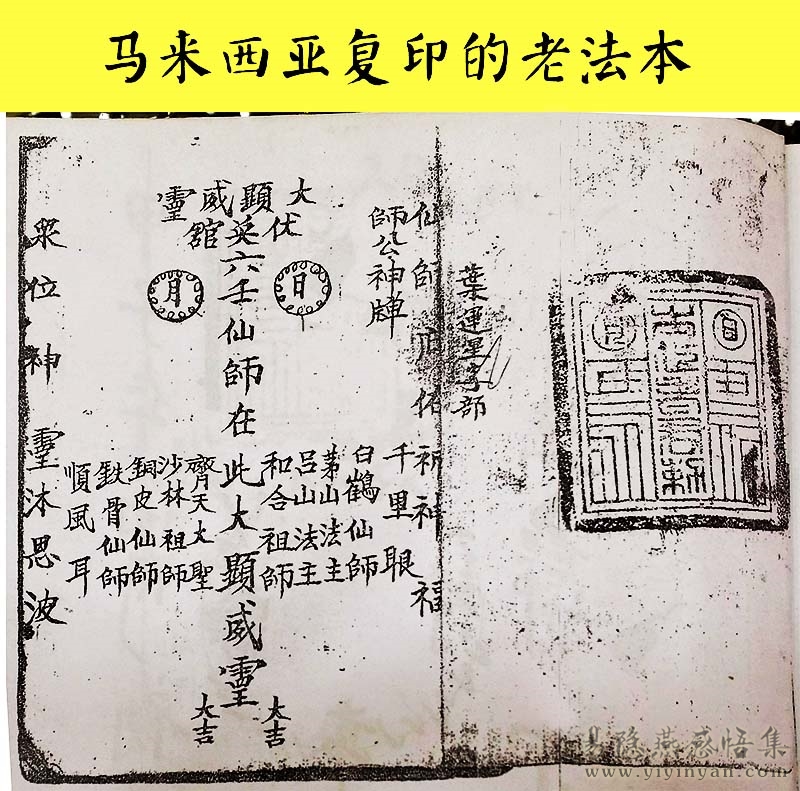 马来西亚复印的老法本
葉運星部
仙師庇佑祈神福
師公神牌
大顯威靈
伏英館
日
月
六壬仙師在此大顯威靈
千里眼
白鶴仙師
茅山法主
呂山法主
和合祖師
齊天大聖
沙林祖師
銅皮仙師
鉄骨仙師
順風耳
大吉
大吉
衆位神靈沐思波
易隐燕感悟集
www.yiyinyan.com